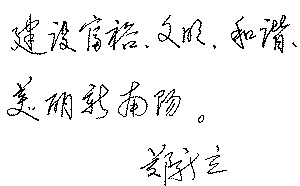 建设富裕、文明、和谐、
美丽新南阳。
郑新立